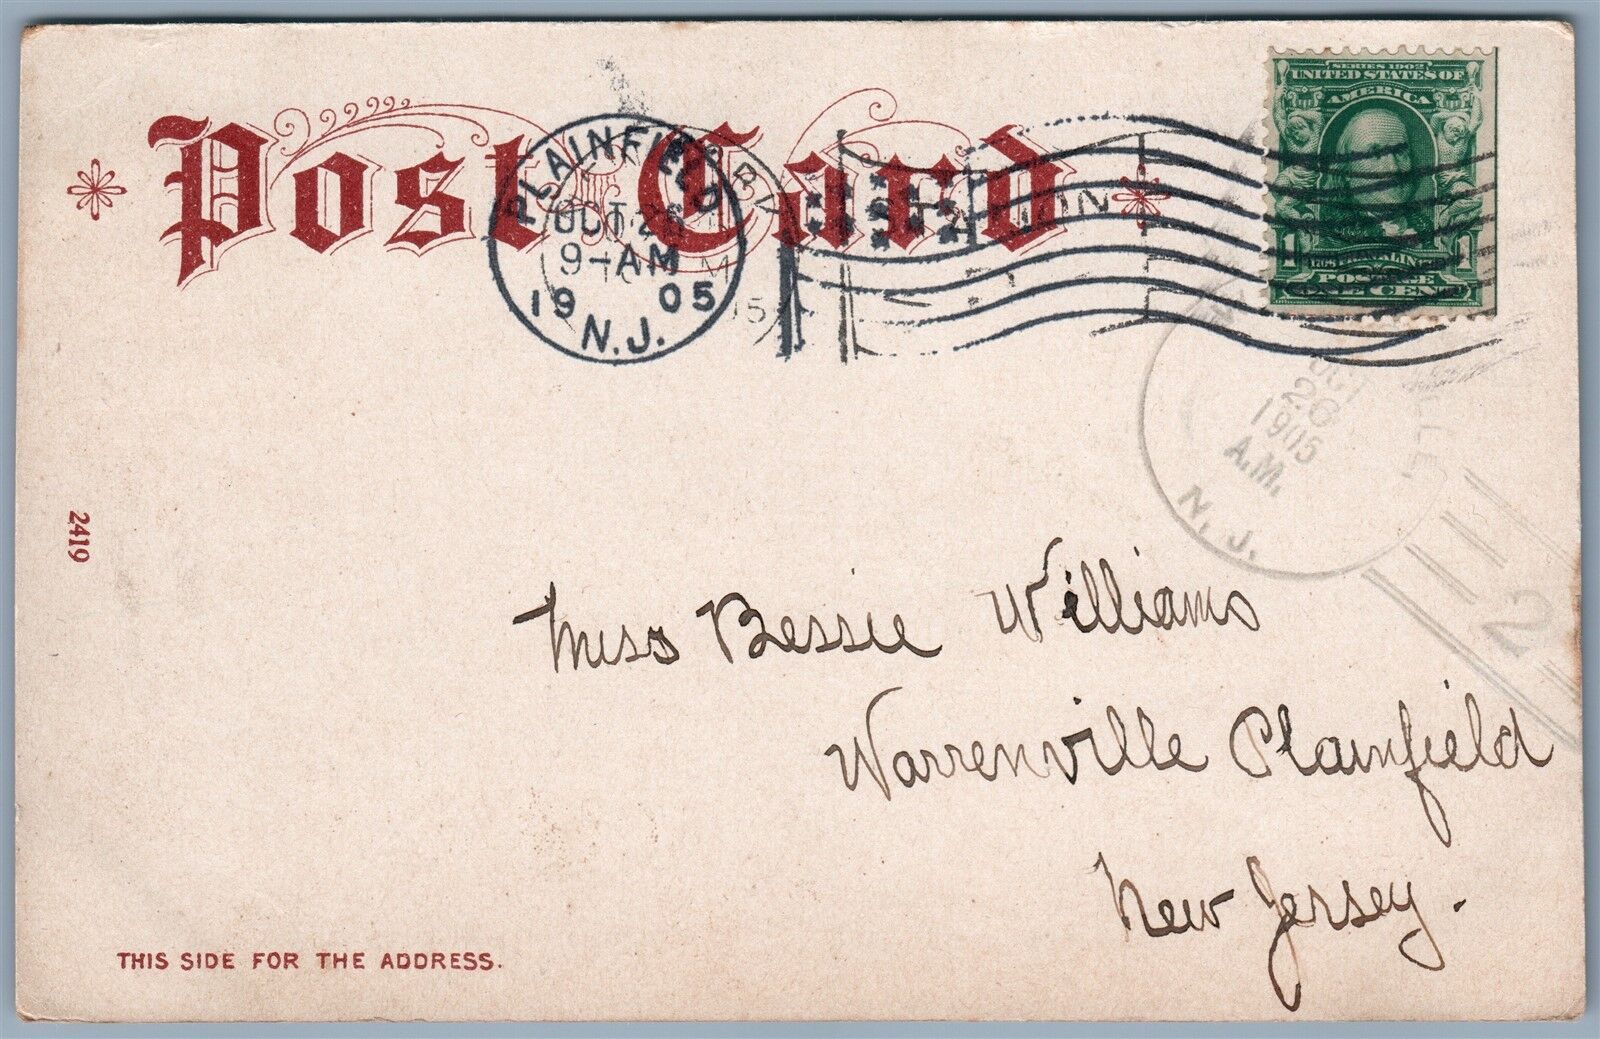 Post Card
SERIES 1902
UNITED STATES OF
AMERICA
1 FRANKLIN 1
POSTAGE
ONE CENT
PLAINFIELD
OCT 26
9-AM
1905
N.J.
STATION
M
OCT
26
1905
A.M.
N.J.
2
2419
Miss Bessie Williams
Warrenville Plainfield
New Jersey.
THIS SIDE FOR THE ADDRESS.